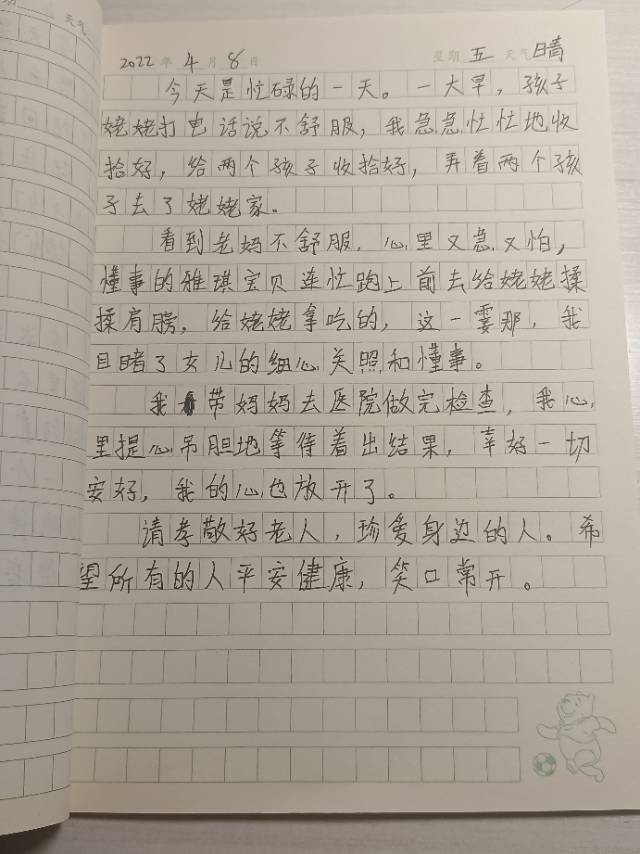 2022年4月8日 星期五 天气晴
今天是忙碌的一天。一大早，孩子
姥姥打电话说不舒服，我急急忙忙地收
拾好，给两个孩子收拾好，弄着两个孩
子去了姥姥家。
看到老妈不舒服，心里又急又怕，
懂事的雅琪宝贝连忙跑上前去给姥姥揉
揉肩膀，给姥姥拿吃的，这一霎那，我
目睹了女儿的细心关照和懂事。
我带妈妈去医院做完检查，我心
里提心吊胆地等待着出结果，幸好一切
安好，我的心也放开了。
请孝敬好老人，珍爱身边的人。希
望所有的人平安健康，笑口常开。